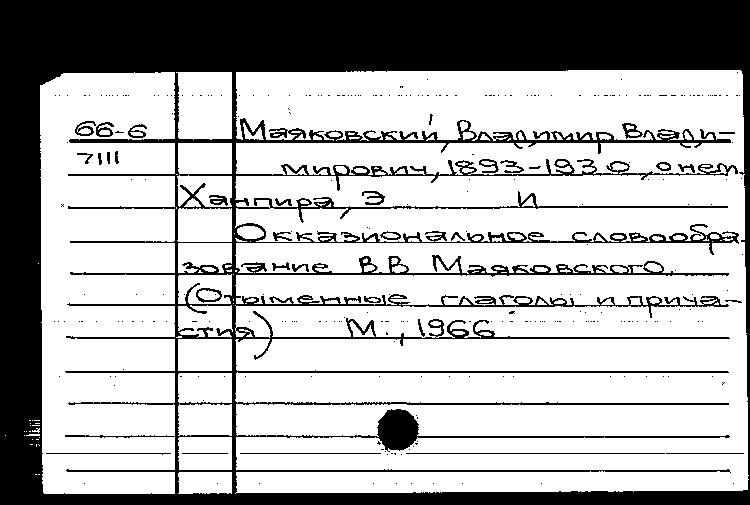 66-6 Маяковский, Владимир Влади-
7111 мирович, 1893-1930, о нем.
Ханпира, Э И
Окказиональное словообра-
зование В.В Маяковского.
(Отыменные глаголы и прича-
стия) М., 1966